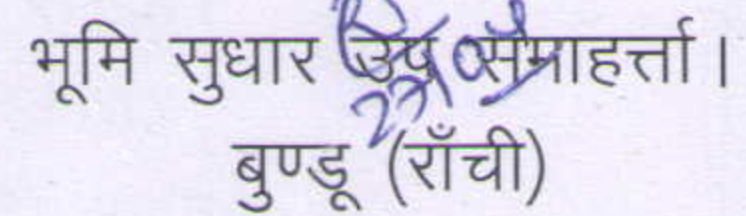 भूमि सुधार उप समाहर्त्ता।
बुण्डू (राँची)